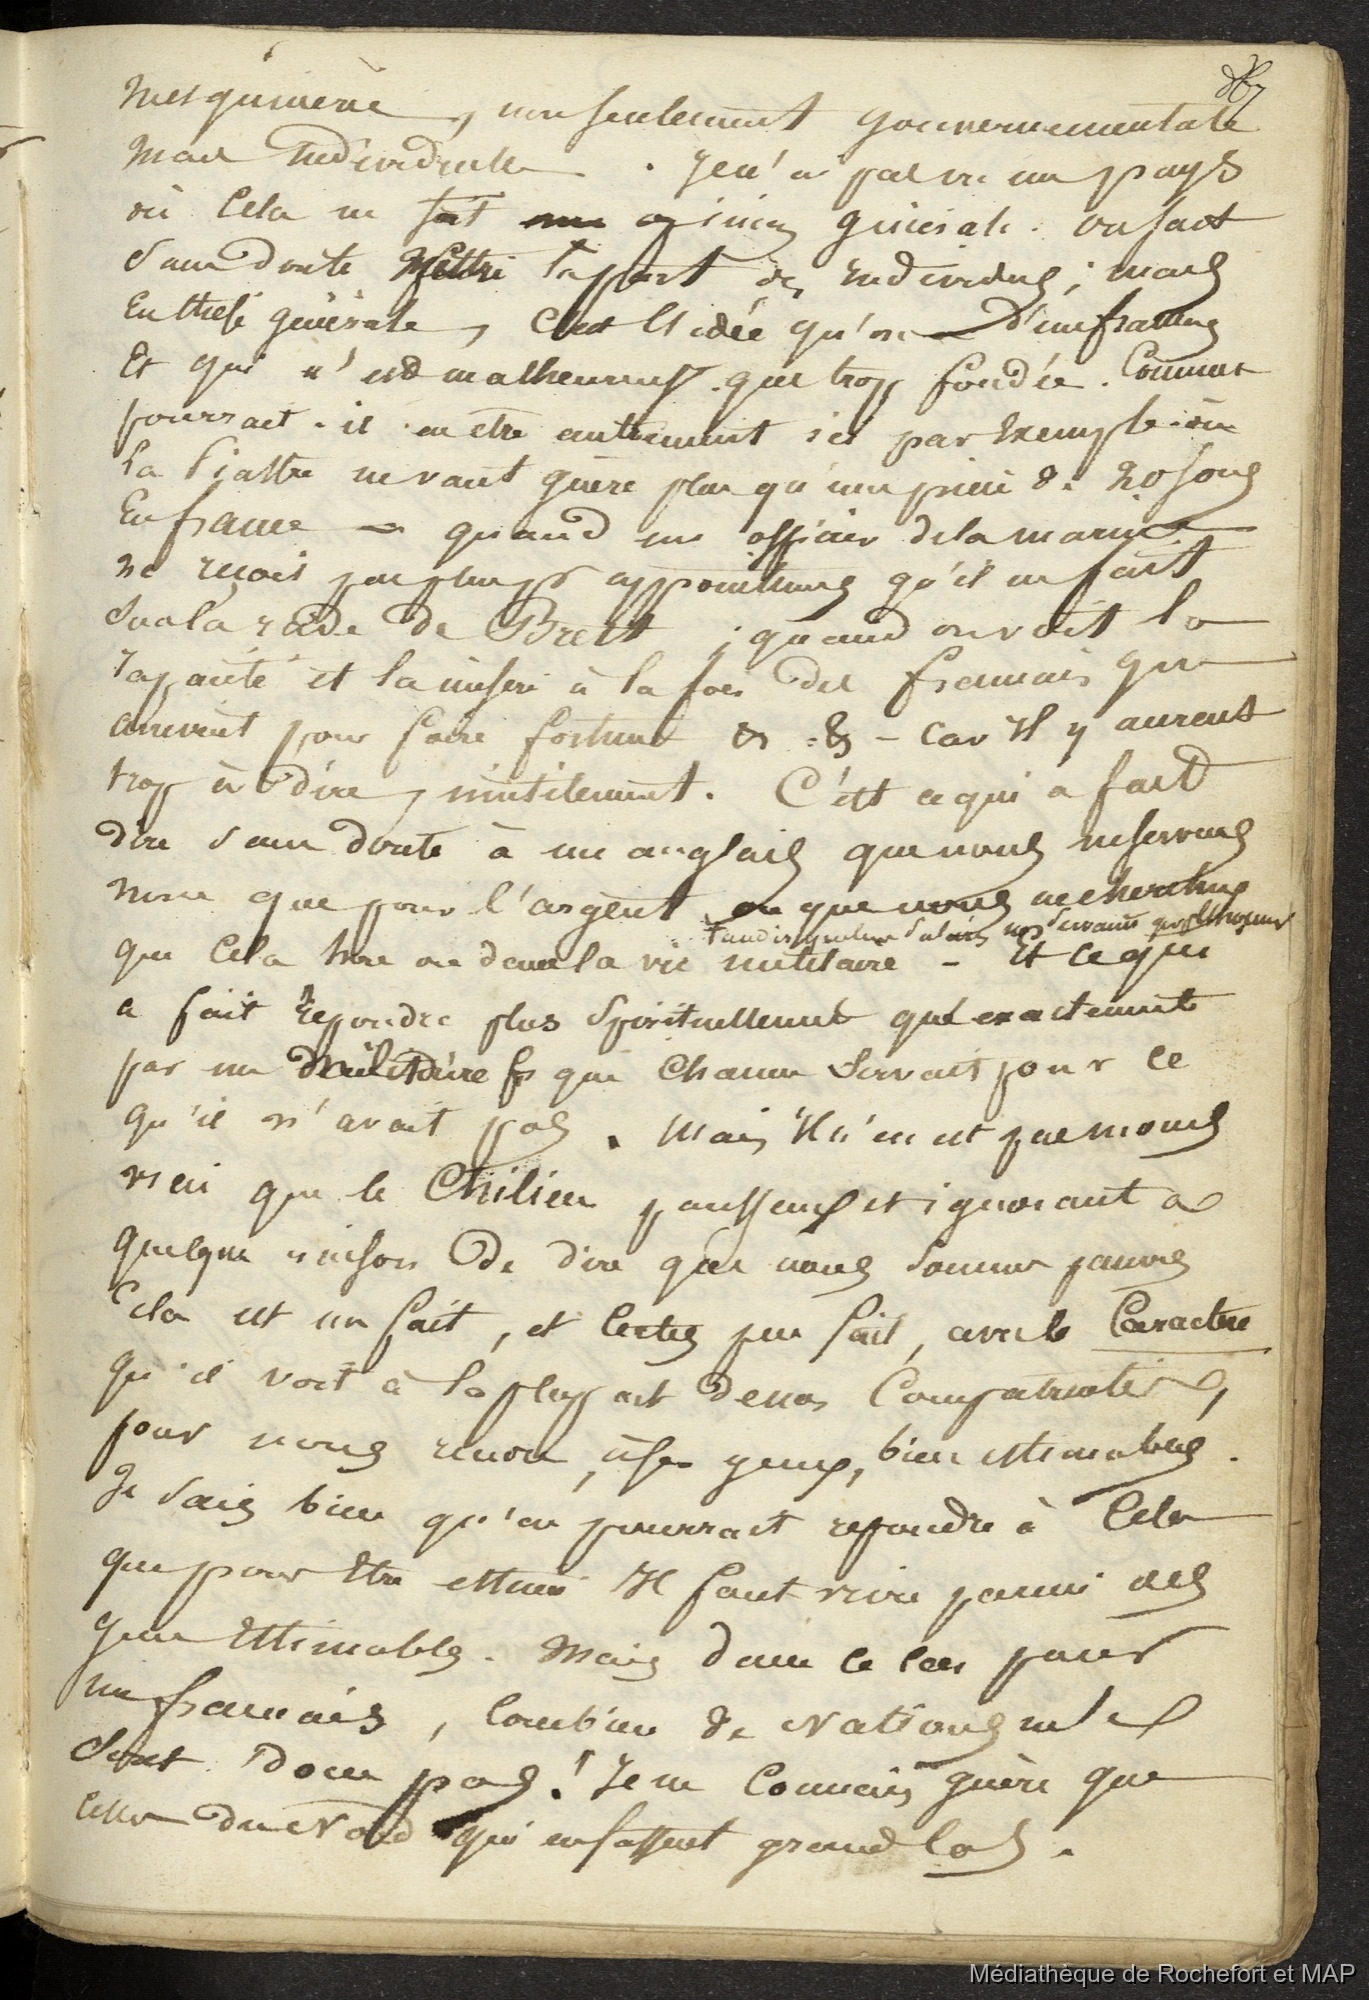 mesquinerie, non seulement gouvernementale
mais individuelle. Je n'ai pas vu un pays
où cela ne fut opinion générale. on fait
sans doute mettre la part des individus; mais
En these générale, c'est l'idée qu'on a d'un francais
Et qui n'est malheureust. que trop fondée. Comment
pourrait-il en être autrement ici par Exemple où
la Piastre ne vaut guère plus qu'une pièce de 20 sous
En france — quand un officier de la marine
ne reçois pas plus d'appointemens qu'il en fait
sur la rade de Brest; quand on voit la
rapacité et la misère à la fois des francais qui
arrivent pour faire fortune &. &. — car Il y aurait
trop à dire, inutilement. C'est ce qui a fait
dire sans doute à un anglais que nous ne servons
nous que pour l'argent ou que nous ne cherchons
tandis que les Anglais servaient pour l'honneur
que cela hors ou dans la vie militaire — Et ce qui
a fait repondre plus Spirituellement qu'exactement
par un Militaire fs que Chacun Servait pour ce
qu'il n'avait pas. Mais Il n'en est pas moins
vrai que le Chilien paresseux et ignorant a
quelque raison de dire que nous sommes pauvres
Cela est un fait, et certes peu fait, avec le Caractere
qu'il voit à la plupart de nos Compatriotes,
pour nous rendre, à ses yeux, bien estimables.
Je sais bien qu'on pourrait repondre à Cela
que pour Etre estimé Il faut vivre parmi des
gens Estimables. Mais dans ce cas pour
un francais, Combien de Nations ne le
sont donc pas! Je ne Connais guère que
celles du Nord qui en fassent grand cas.
Médiathèque de Rochefort et MAP